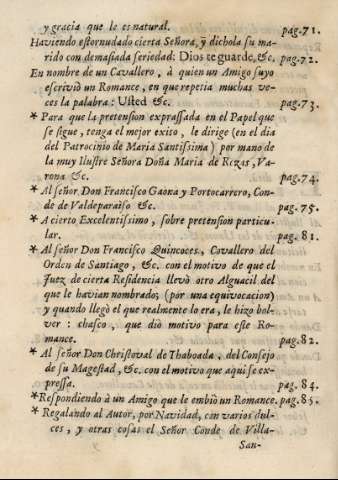 y gracia que le es natural. pag.71.
Haviendo estornudado cierta Señora, ÿ dichola su ma-
rido con demasiada seriedad: Dios te guarde, &c. pag.72.
En nombre de un Cavallero, à quien un Amigo suyo
escriviò un Romance, en que repetia muchas ve-
ces la palabra: Usted &c. pag.73.
* Para que la pretension expressada en el Papel que
se sigue, tenga el mejor exito, le dirige (en el dia
del Patrocinio de Maria Santissima) por mano de
la muy Ilustre Señora Doña Maria de Rozas, Va-
rona &c. pag.74.
* Al señor Don Francisco Gaona y Portocarrero, Con-
de de Valdeparaiso &c. pag.75.
* A cierto Excelentissimo, sobre pretension particu-
lar. pag.81.
* Al señor Don Francisco Quincoces, Cavallero del
Orden de Santiago, &c. con el motivo de que el
Juez de cierta Residencia llevò otro Alguacil del
que le havian nombrado; (por una equivocacion)
y quando llegò el que realmente lo era, le hizo bol-
ver: chasco, que diò motivo para este Ro-
mance. pag.82.
* Al señor Don Christoval de Thaboada, del Consejo
de su Magestad, &c. con el motivo que aqui se ex-
pressa. pag. 84.
* Respondiendo à un Amigo que le embiò un Romance. pag.85.
* Regalando al Autor, por Navidad, con varios dul-
ces, y otras cosas el Señor Conde de Villa-
San-